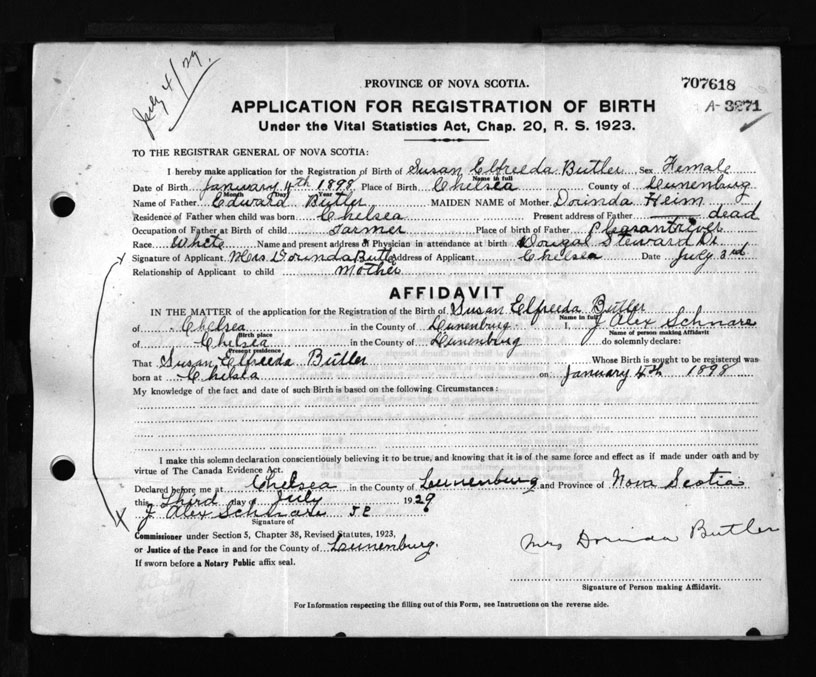 July 4/29
PROVINCE OF NOVA SCOTIA.
707618
APPLICATION FOR REGISTRATION OF BIRTH
A-3271
Under the Vital Statistics Act, Chap. 20, R. S. 1923.
TO THE REGISTRAR GENERAL OF NOVA SCOTIA:
I hereby make application for the Registration of Birth of Susan Elfreeda Butler Sex Female
Name in full
Date of Birth January 4th 1898 Place of Birth Chelsea County of Lunenburg
Month (Day) Year
Name of Father Edward Butler MAIDEN NAME of Mother Dorinda Heim
Residence of Father when child was born Chelsea Present address of Father dead
Occupation of Father at Birth of child Farmer Place of birth of Father Pleasantriver
Race White Name and present address of Physician in attendance at birth Dougal Steward Dr
Signature of Applicant Mrs Dorinda Butler Address of Applicant Chelsea Date July 3rd
Relationship of Applicant to child Mother
AFFIDAVIT
IN THE MATTER of the application for the Registration of the Birth of Susan Elfreeda Butler
Name in full
of Chelsea in the County of Lunenburg. I, J Alex Schnare
Birth place Name of person making Affidavit
of Chelsea in the County of Lunenburg do solemnly declare:
Present residence
That Susan Elfreeda Butler Whose Birth is sought to be registered was
born at Chelsea on January 4th 1898
My knowledge of the fact and date of such Birth is based on the following Circumstances:
I make this solemn declaration conscientiously believing it to be true, and knowing that it is of the same force and effect as if made under oath and by
virtue of The Canada Evidence Act.
Declared before me at Chelsea in the County of Lunenburg and Province of Nova Scotia
this Third day of July 1929
J Alex Schnare J P
Signature of
Commissioner under Section 5, Chapter 38, Revised Statutes, 1923,
or Justice of the Peace in and for the County of Lunenburg.
Mrs Dorinda Butler
If sworn before a Notary Public affix seal.
Signature of Person making Affidavit.
For Information respecting the filling out of this Form, see Instructions on the reverse side.